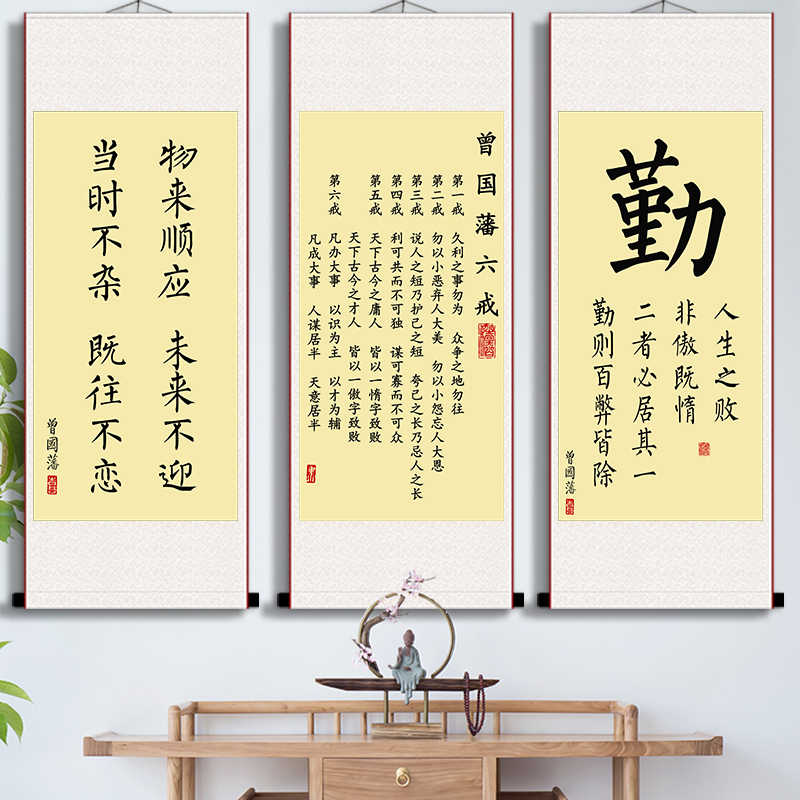 物来顺应 未来不迎
当时不杂 既往不恋
曾國藩
曾国藩六戒
第一戒 久利之事勿为 众争之地勿往
第二戒 勿以小恶弃人大美 勿以小怨忘人大恩
第三戒 说人之短乃护己之短 夸己之长乃忌人之长
第四戒 利可共而不可独 谋可寡而不可众
第五戒 天下古今之庸人 皆以一惰字致败
天下古今之才人 皆以一傲字致败
第六戒 凡办大事 以识为主 以才为辅
凡成大事 人谋居半 天意居半
勤
人生之败
非傲既惰
二者必居其一
勤则百弊皆除
曾國藩